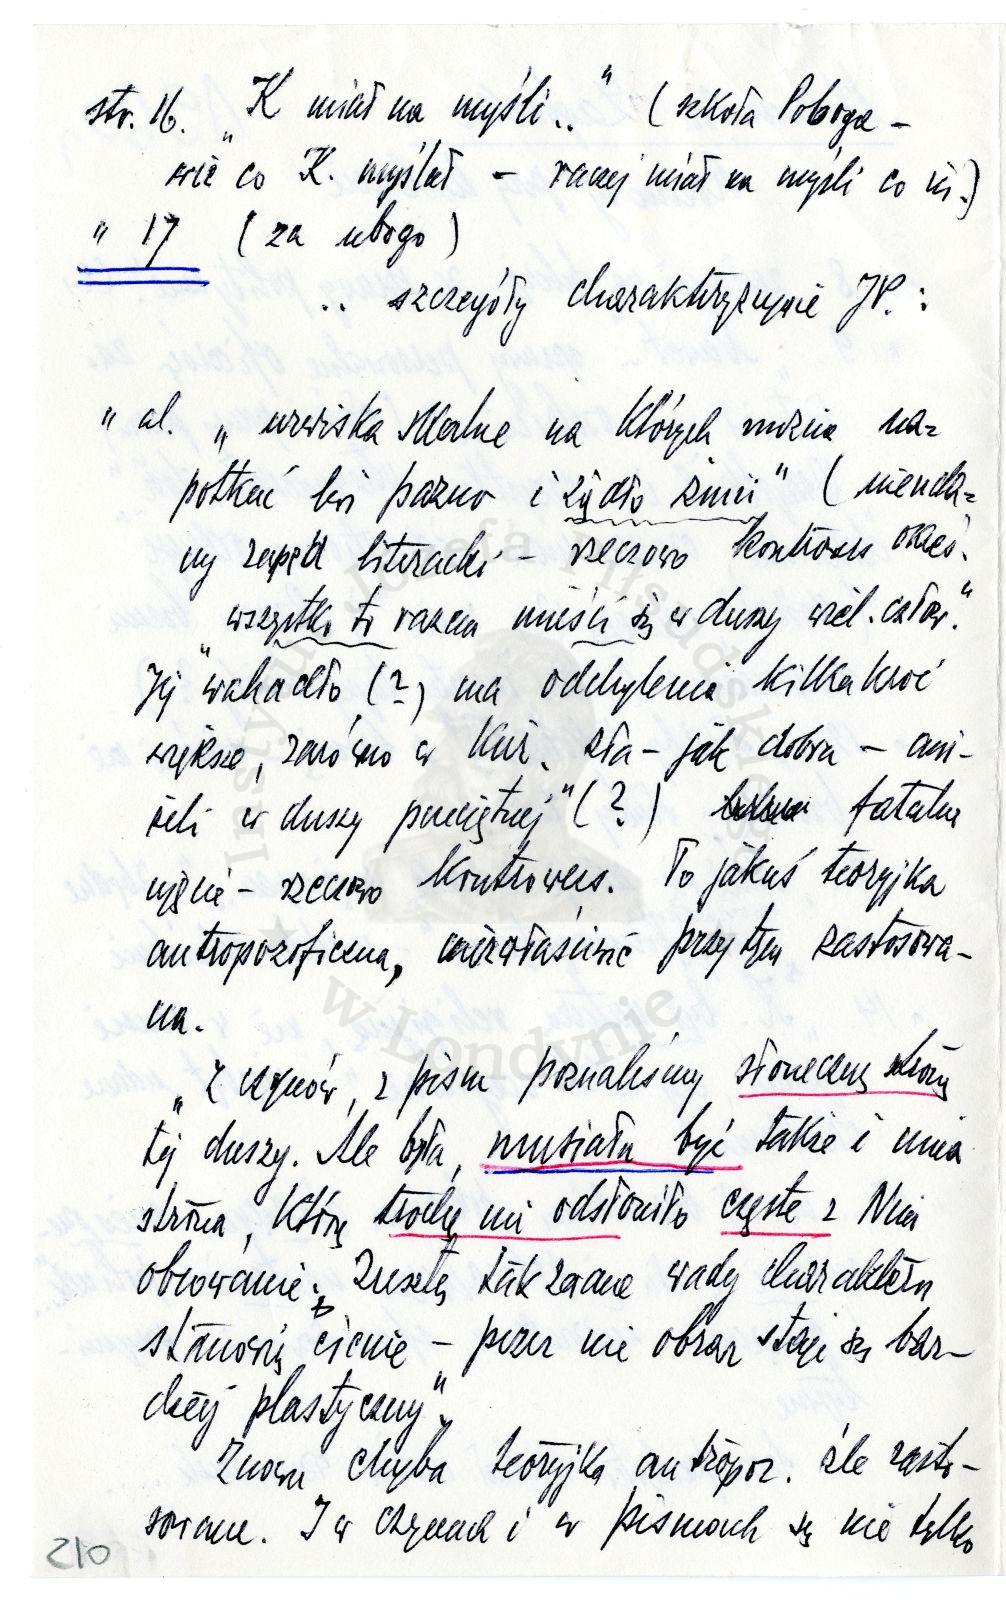 str. 16. „K miał na myśli.." (szkoła Poboga –
wie co K. myślał – raczej miał na myśli co in.)
" 17 (za ubogo)
.. szczegóły charakteryzujące JP. :
" al. „urwiska skalne na których można na=
potkać lwi pazur i żądło żmii" (nieuda=
ny zapęd literacki – rzeczowo kontrows
wszystko to razem mieści się w duszy wiel. człow."
Jej "wahadło (?) ma odchylenia kilkakroć
większe, zarówno w kier. zła – jak dobra – ani-
żeli w duszy przeciętnej" (?) fatalne
ujęcie – rzeczowo kontrowers. To jakaś teoryjka
antropozoficzna, niewłaściwie przy tym zastosowa-
na.
„Z czynów, z pism poznaliśmy słoneczną stronę
tej duszy. Ale była, musiała być także i inna
strona, którą trochę mi odsłoniło częste z Nim
obcowanie; Zresztą tak zwane wady charakteru
stanowią cienie – przez nie obraz staje się bar-
dziej plastyczny".
Znowu chyba teoryjka antropoz. źle zasto-
sowana. I w czynach i w pismach są nie tylko
210
Instytut Józefa Piłsudskiego
w Londynie